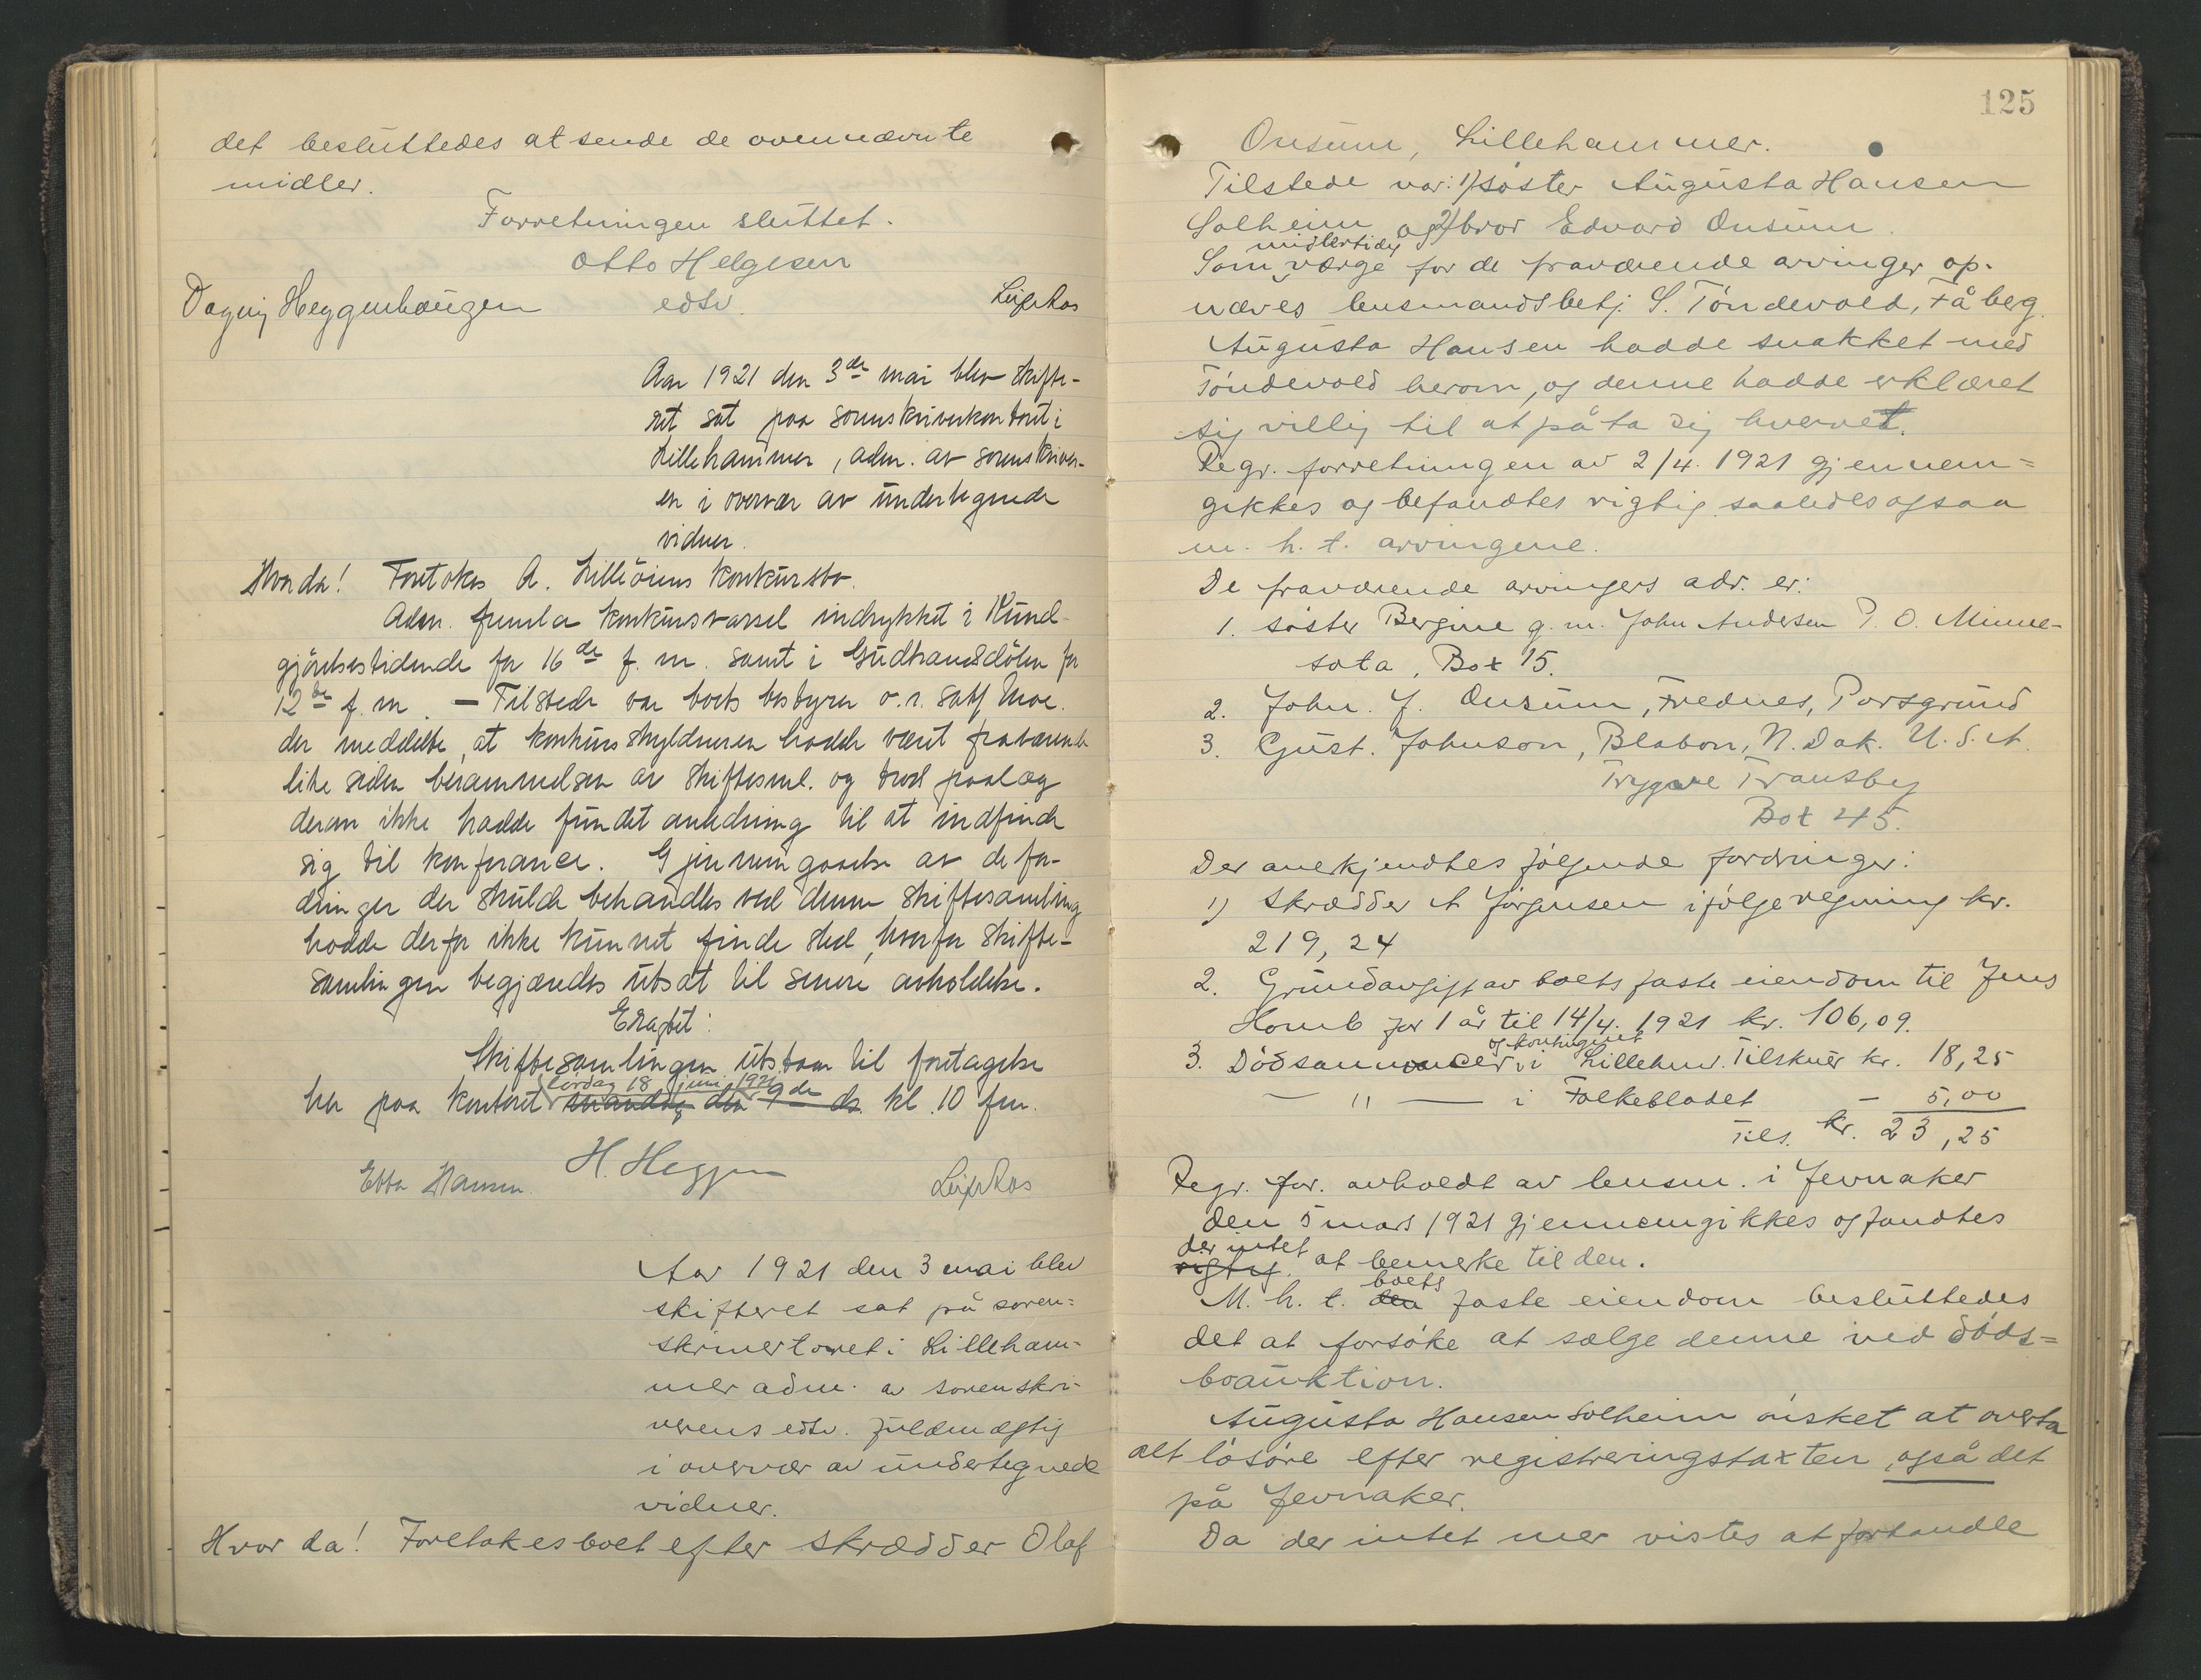 det besluttedes at sende de ovennævnte
midler.
Forretningen sluttet.
Otto Helgesen
Dagny Heggenhaugen edsv. Leif Aas
Aar 1921 den 3de mai blev skifte-
ret sat paa sorenskriverkontoret i
Lillehammer, adm. av sorenskriver-
en i overvær av undertegnede
vidner.
Hvor da! Foretokes A. Lilleöiens konkursbo.
Adm. fremla konkursvarsel indrykket i Kund-
gjörelsestidende for 16de f. m. samt i Gudbrandsdölen for
12te f. m. – Tilstede var boets bestyrer o.r.sakf. Moe.
der meddelte, at konkursskyldneren hadde været fraværende
like siden berammelsen av skiftesml. og trods paalæg
derom ikke hadde fundet anledning til at indfinde
sig til konferance. Gjennemgaaelse av de for-
dringer der skulde behandles ved denne skiftesamling
hadde derfor ikke kunnet finde sted, hvorfor skifte-
samlingen begjæredes utsat til senere avholdelse.
Eragtet:
Skiftesamlingen utstaar til foretagelse
lördag 18 juni 1921
her paa kontoret mandag den 9de ds. kl. 10 fm.
H. Heggen
Ebba Hansen Leif Aas
Aar 1921 den 3 mai blev
skifteret sat på soren-
skriverkonet i Lilleham-
mer adm. av sorenskri-
verens edsv. fuldmægtig
i overvær av undertegnede
vidner.
Hvor da! Foretokes boet efter skrædder Olaf
125
Onsum, Lillehammer.
Tilstede var: 1) söster Augusta Hansen
Solheim og 2) bror Edvard Onsum.
midlertidig
Som værge for de fraværende arvinger op-
nævnes lensmandsbetj. S. Töndevold, Fåberg.
Augusta Hansen hadde snakket med
Töndevold herom, og denne hadde erklæret
sig villig til at påta sig hvervet.
Regr. forretningen av 2/4. 1921 gjennem-
gikkes og befandtes rigtig saaledes ogsaa
m. h. t. arvingene.
De fraværende arvingers adr. er:
1. söster Bergine g. m. John Andersen P. O. Minne-
sota, Box 15.
2. John. J. Onsum, Frednes, Porsgrund
3. Gust. Johnson, Blabon, N. Dak. U. S. A.
Trygve Transby
Box 45.
Der anerkjendtes fölgende fordringer:
1) Skrædder A Jörgensen ifölge regning kr.
219,24
2. Grundavgift av boets faste eiendom til Jens
Homb for 1 år til 14/4. 1921 kr. 106,09.
og kontingent
3. Dödsannoncer i Lillehm. Tilskuer kr. 18,25
— " — i Folkebladet – 5,00
Tils. kr. 23,25
Regr. for. avholdt av lensm. i Jevnaker
den 5 mars 1921 gjennemgikkes og fandtes
der intet
rigtig at bemerke til den.
boets
M. h. t. den faste eiendom besluttedes
det at forsöke at sælge denne ved döds-
boauktion.
Augusta Hansen Solheim önsket at overta
alt lösöre efter registreringstaxten, også det
på Jevnaker.
Da der intet mer vistes at forhandle